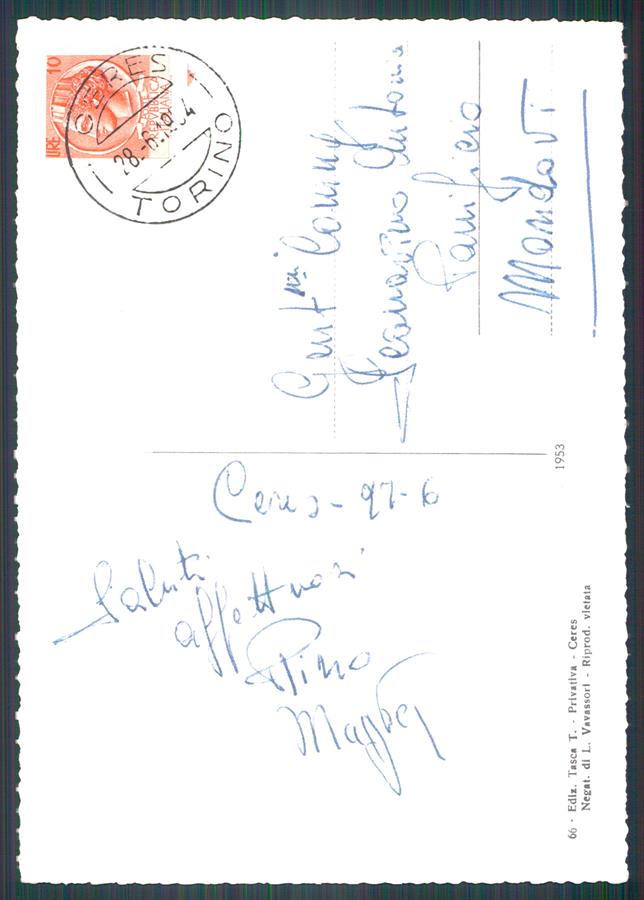 LIRE 10
REPVBBLICA
ITALIANA
CERES
28-6.1954
TORINO
Gent mi
Antonio
Panificio
Mondovì
1953
Ceres - 27-6
Saluti
affettuosi
Pino
66 - Ediz. Tasca T. - Privativa - Ceres
Negat. di L. Vavassori - Riprod. vietata